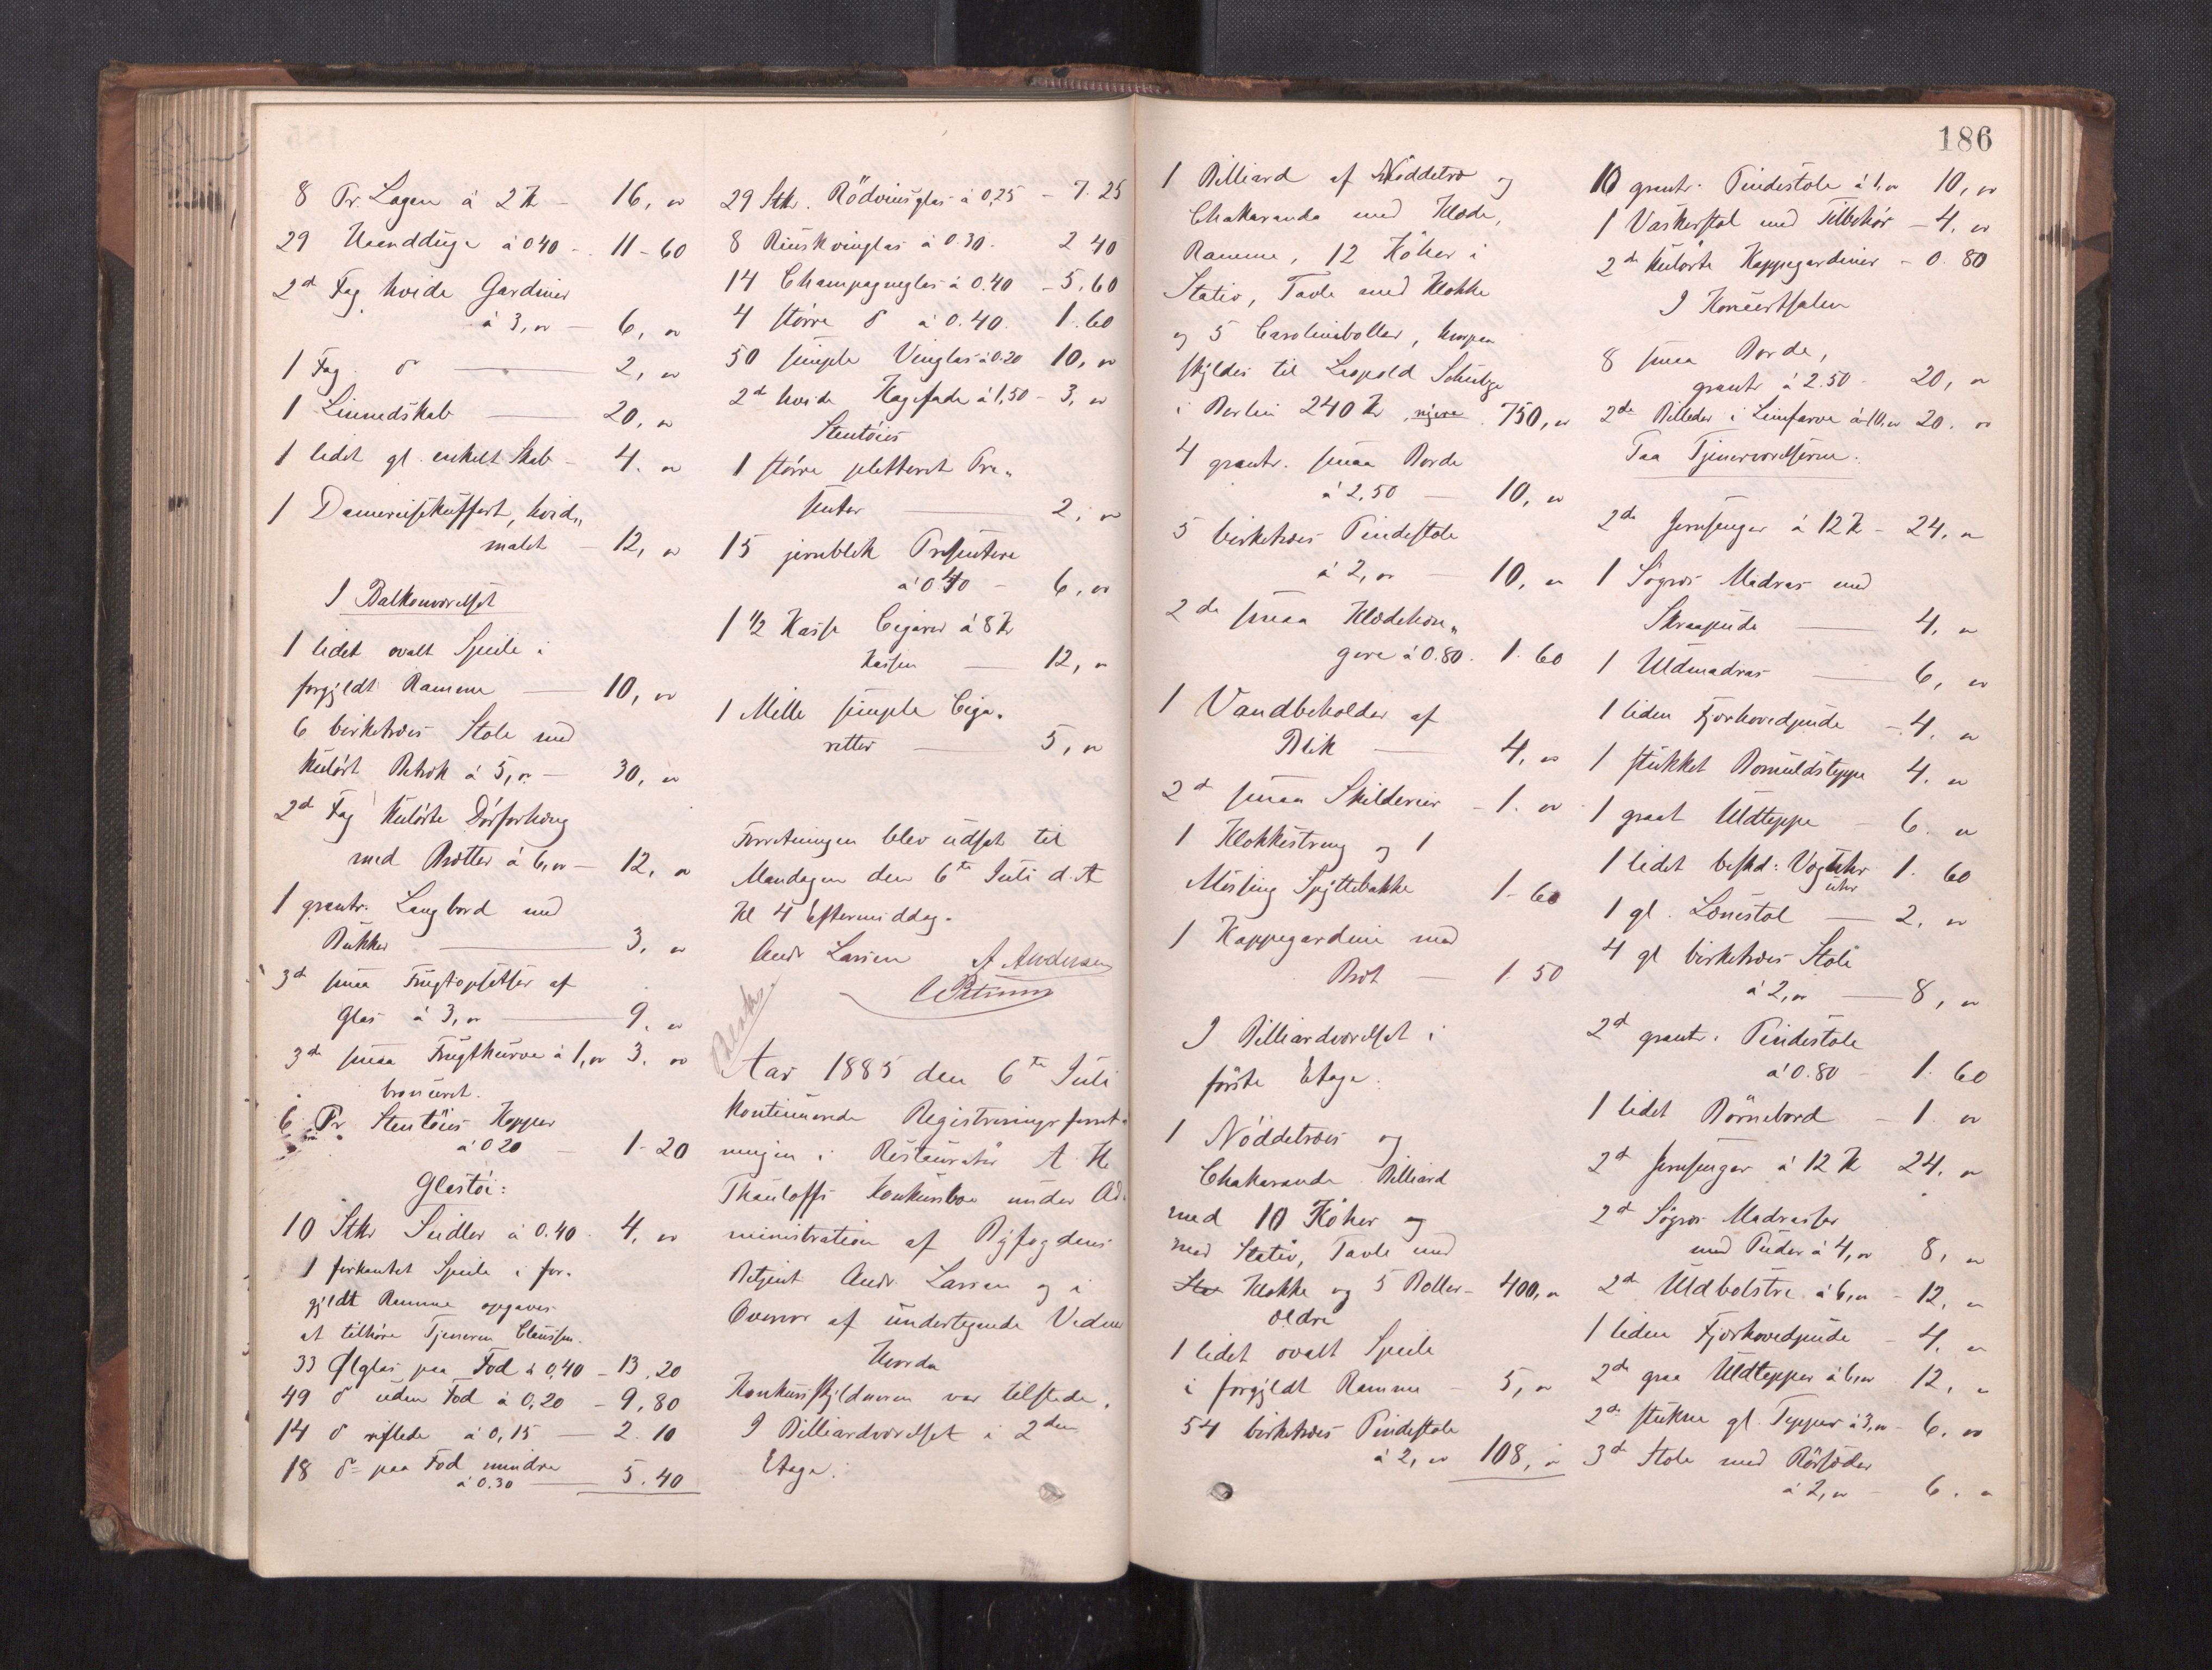 8 Pr. Lagen à 2 Kr - 16, "
29 Haandduge à 0 40 - 11-60
2de Fag hvide Gardiner
à 3, " - 6, "
1 Fag do - 2, "
1 Linnedskab - 20, "
1 lidet gl. enkelt Skab - 4. "
1 Damereisekuffert, hvid„
malet - 12, "
I Balkonværelset
1 lidet ovalt Speile i
forgyldt Ramme - 10, "
6 birketræes Stole med
kulört Betræk à 5, " - 30, "
2de Fag kulörte Dörforhæng
med Brætter à 6, " - 12, "
1 grantr. Langbord med
Bukker - 3, "
3de smaa Frugtopsatser af
Glas à 3, " - 9, "
3de smaa Frugtkurve à 1, " 3. "
bronceret.
6 Pr Stentöies Kopper
à 0 20 - 1-20
Glastöi:
10 Stkr Seidler à 0.40. 4, "
1 firkantet Speile i for-
gyldt Ramme opgaves
at tilhöre Tjeneren Claussen.
33 Ølglas paa Fod à 0,40 - 13,20
49 do uden Fod à 0,20 - 9,80
14 do riflede à 0,15 - 2.10
18 do paa Fod mindre
à 0.30 - 5.40
29 Stkr. Rödviinsglas à 0,25 - 7.25
8 Rinskvinglas à 0.30. 2 40
14 Champagneglas à 0.40 - 5.60
4 större do à 0.40. 1.60
50 simple Vinglas à 0.20 10, "
2de hvide Kagefade à 1,50 - 3, "
Stentöies
1 större pletteret Pre„
senter 2, "
15 jernblik Presentere
à 0 40 - 6, "
1 1/2 Kasse Cigarer à 8 Kr
Kassen - 12, "
1 Mille simple Ciga-
retter - 5, "
Forretningen blev udsat til
Mandagen den 6te Juli d. A
Kl 4 Eftermiddag.
Andr Larsen A Andersen
Aar 1885 den 6te Juli
kontinuerede Registreringsforret-
ningen i Restauratör A. H.
Thauloffs Konkursboe under Ad-
ministration af Byfogdens
Betjent Andr. Larsen og i
Overvær af undertegnede Vidner
Hvorda
Konkursskyldneren var tilstede.
I Billiardværelset i 2den
Etage:
186
1 Billiard af Nöddetræ og
Chakaranda med Klæde,
Ramme, 12 Köher i
Stativ, Tavle med Klokke
og 5 Carolineboller, hvorpaa
skyldes til Leopold Schulze
i Berlin 240 Kr 750, "
4 grantr. smaa Borde
à 2,50 - 10, "
5 birketræes Pindestole
à 2, " - 10, "
2de smaa Klædehæn„
gere à 0.80. 1.60
1 Vandbeholder af
Blik - 4, "
2de smaa Skilderier - 1. "
1 Klokkestræng og 1
Mæsing Spyttebakke 1-60
1 Kappegardin med
Bræt - 1.50
I Billiardværelset i
förste Etage.
1 Nöddetræes og
Chakaranda Billiard
med 10 Köher og
med Stativ, Tavle med
Klokke og 5 Boller - 400, "
ældre
1 lidet ovalt Speile
i forgyldt Ramme - 5, "
54 birketræes Pindestole
à 2, " 108, "
10 grantr. Pindestole à 1, " 10, "
1 Vaskerstol med Tilbehör - 4, "
2de kulörte Kappegardiner - 0.80
I Koncertsalen
8 smaa Borde,
grantr à 2.50 - 20, "
2de Billeder i Limfarve à 10, " 20. "
Paa Tjenerværelserne.
2de Jernsenger à 12 Kr - 24, "
1 Sögræs Madras med
Skraapude - 4, "
1 Uldmadras - 6, "
1 liden Fjærhovedpude - 4, "
1 stukket Bomuldsteppe 4. "
1 graat Uldteppe - 6. "
1 lidet beskd: Vægtuhr 1.60
uhr
1 gl. Lænestol - 2, "
4 gl birketræes Stole
à 2, " - 8, "
2de grantr. Pindestole
à 0.80 - 1.60
1 lidet Börnebord - 1. "
2de Jernsenger à 12 Kr 24. "
2de Sögræs Madrasser
med Puder à 4, " 8, "
2de Uldbolstre à 6, " - 12, "
1 liden Fjærhovedpude - 4, "
2de graa Uldtepper à 6, " 12, "
2de stukne gl. Tepper à 3, " - 6. "
3de Stole med Rörsæder
à 2, " - 6. "